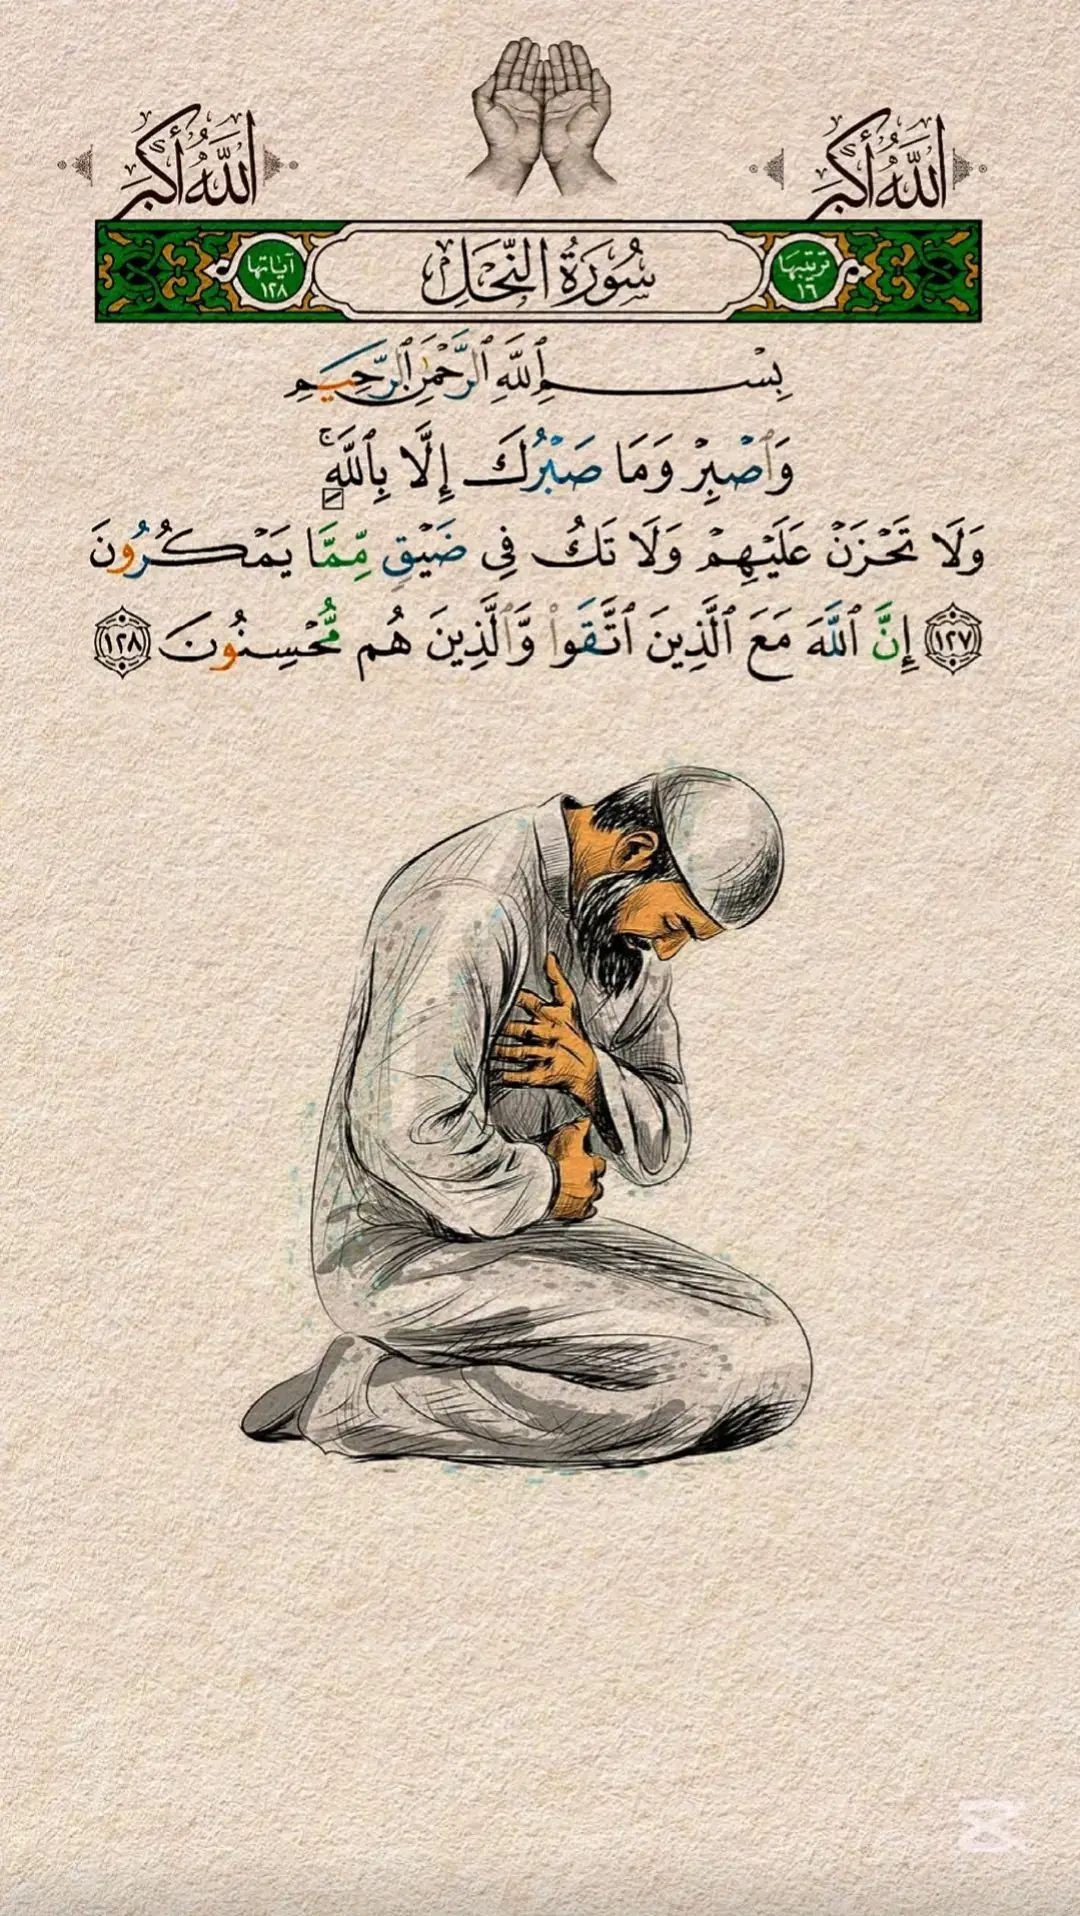 اللَّهُ أَكْبَر
اللَّهُ أَكْبَر
ترتيبها ١٦
سُورَةُ النَّحْلِ
آياتها ١٢٨
بِسْمِ ٱللَّهِ ٱلرَّحْمَٰنِ ٱلرَّحِيمِ
وَٱصْبِرْ وَمَا صَبْرُكَ إِلَّا بِٱللَّهِۚ
وَلَا تَحْزَنْ عَلَيْهِمْ وَلَا تَكُ فِى ضَيْقٍ مِّمَّا يَمْكُرُونَ
١٢٧ إِنَّ ٱللَّهَ مَعَ ٱلَّذِينَ ٱتَّقَوا۟ وَّٱلَّذِينَ هُم مُّحْسِنُونَ ١٢٨